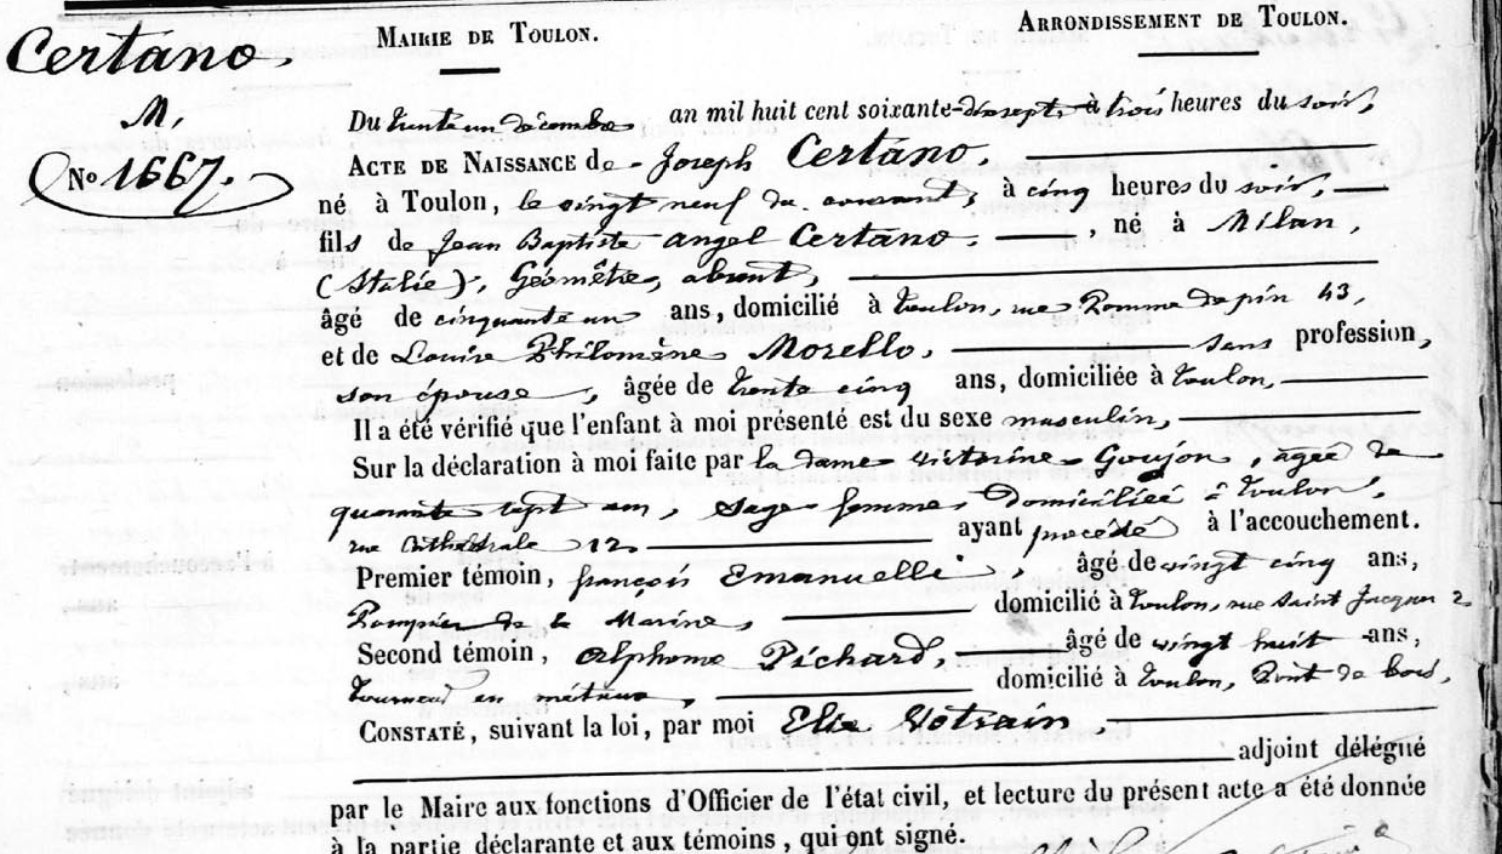 Certano.
M.
No 1667.
MAIRIE DE TOULON.
ARRONDISSEMENT DE TOULON.
Du trente un décembre an mil huit cent soixante-dix sept à trois heures du soir,
ACTE DE NAISSANCE de Joseph Certano.
né à Toulon, le vingt neuf du courant, à cinq heures du soir,
fils de Jean Baptiste angel Certano. , né à Milan,
(Italie), Géomètre, absent,
âgé de cinquante un ans, domicilié à Toulon, rue Pomme de pin 43,
et de Louise Philomène Morello, sans profession,
son épouse, âgée de trente cinq ans, domiciliée à Toulon,
Il a été vérifié que l'enfant à moi présenté est du sexe masculin,
Sur la déclaration à moi faite par la dame Victorine Goujon, agée de
quarante sept ans, sage femme, domiciliée à Toulon,
rue Cathédrale 12, ayant procédé à l'accouchement.
Premier témoin, françois Emanuelli, âgé de vingt cinq ans,
Pompier de la Marine, domicilié à Toulon, rue Saint Jacques 2
Second témoin, Alphonse Pichard, âgé de vingt huit ans,
Tourneur en métaux, domicilié à Toulon, Pont de bois,
CONSTATÉ, suivant la loi, par moi Elie
adjoint délégué
par le Maire aux fonctions d'Officier de l'état civil, et lecture du présent acte a été donnée
à la partie déclarante et aux témoins, qui ont signé.